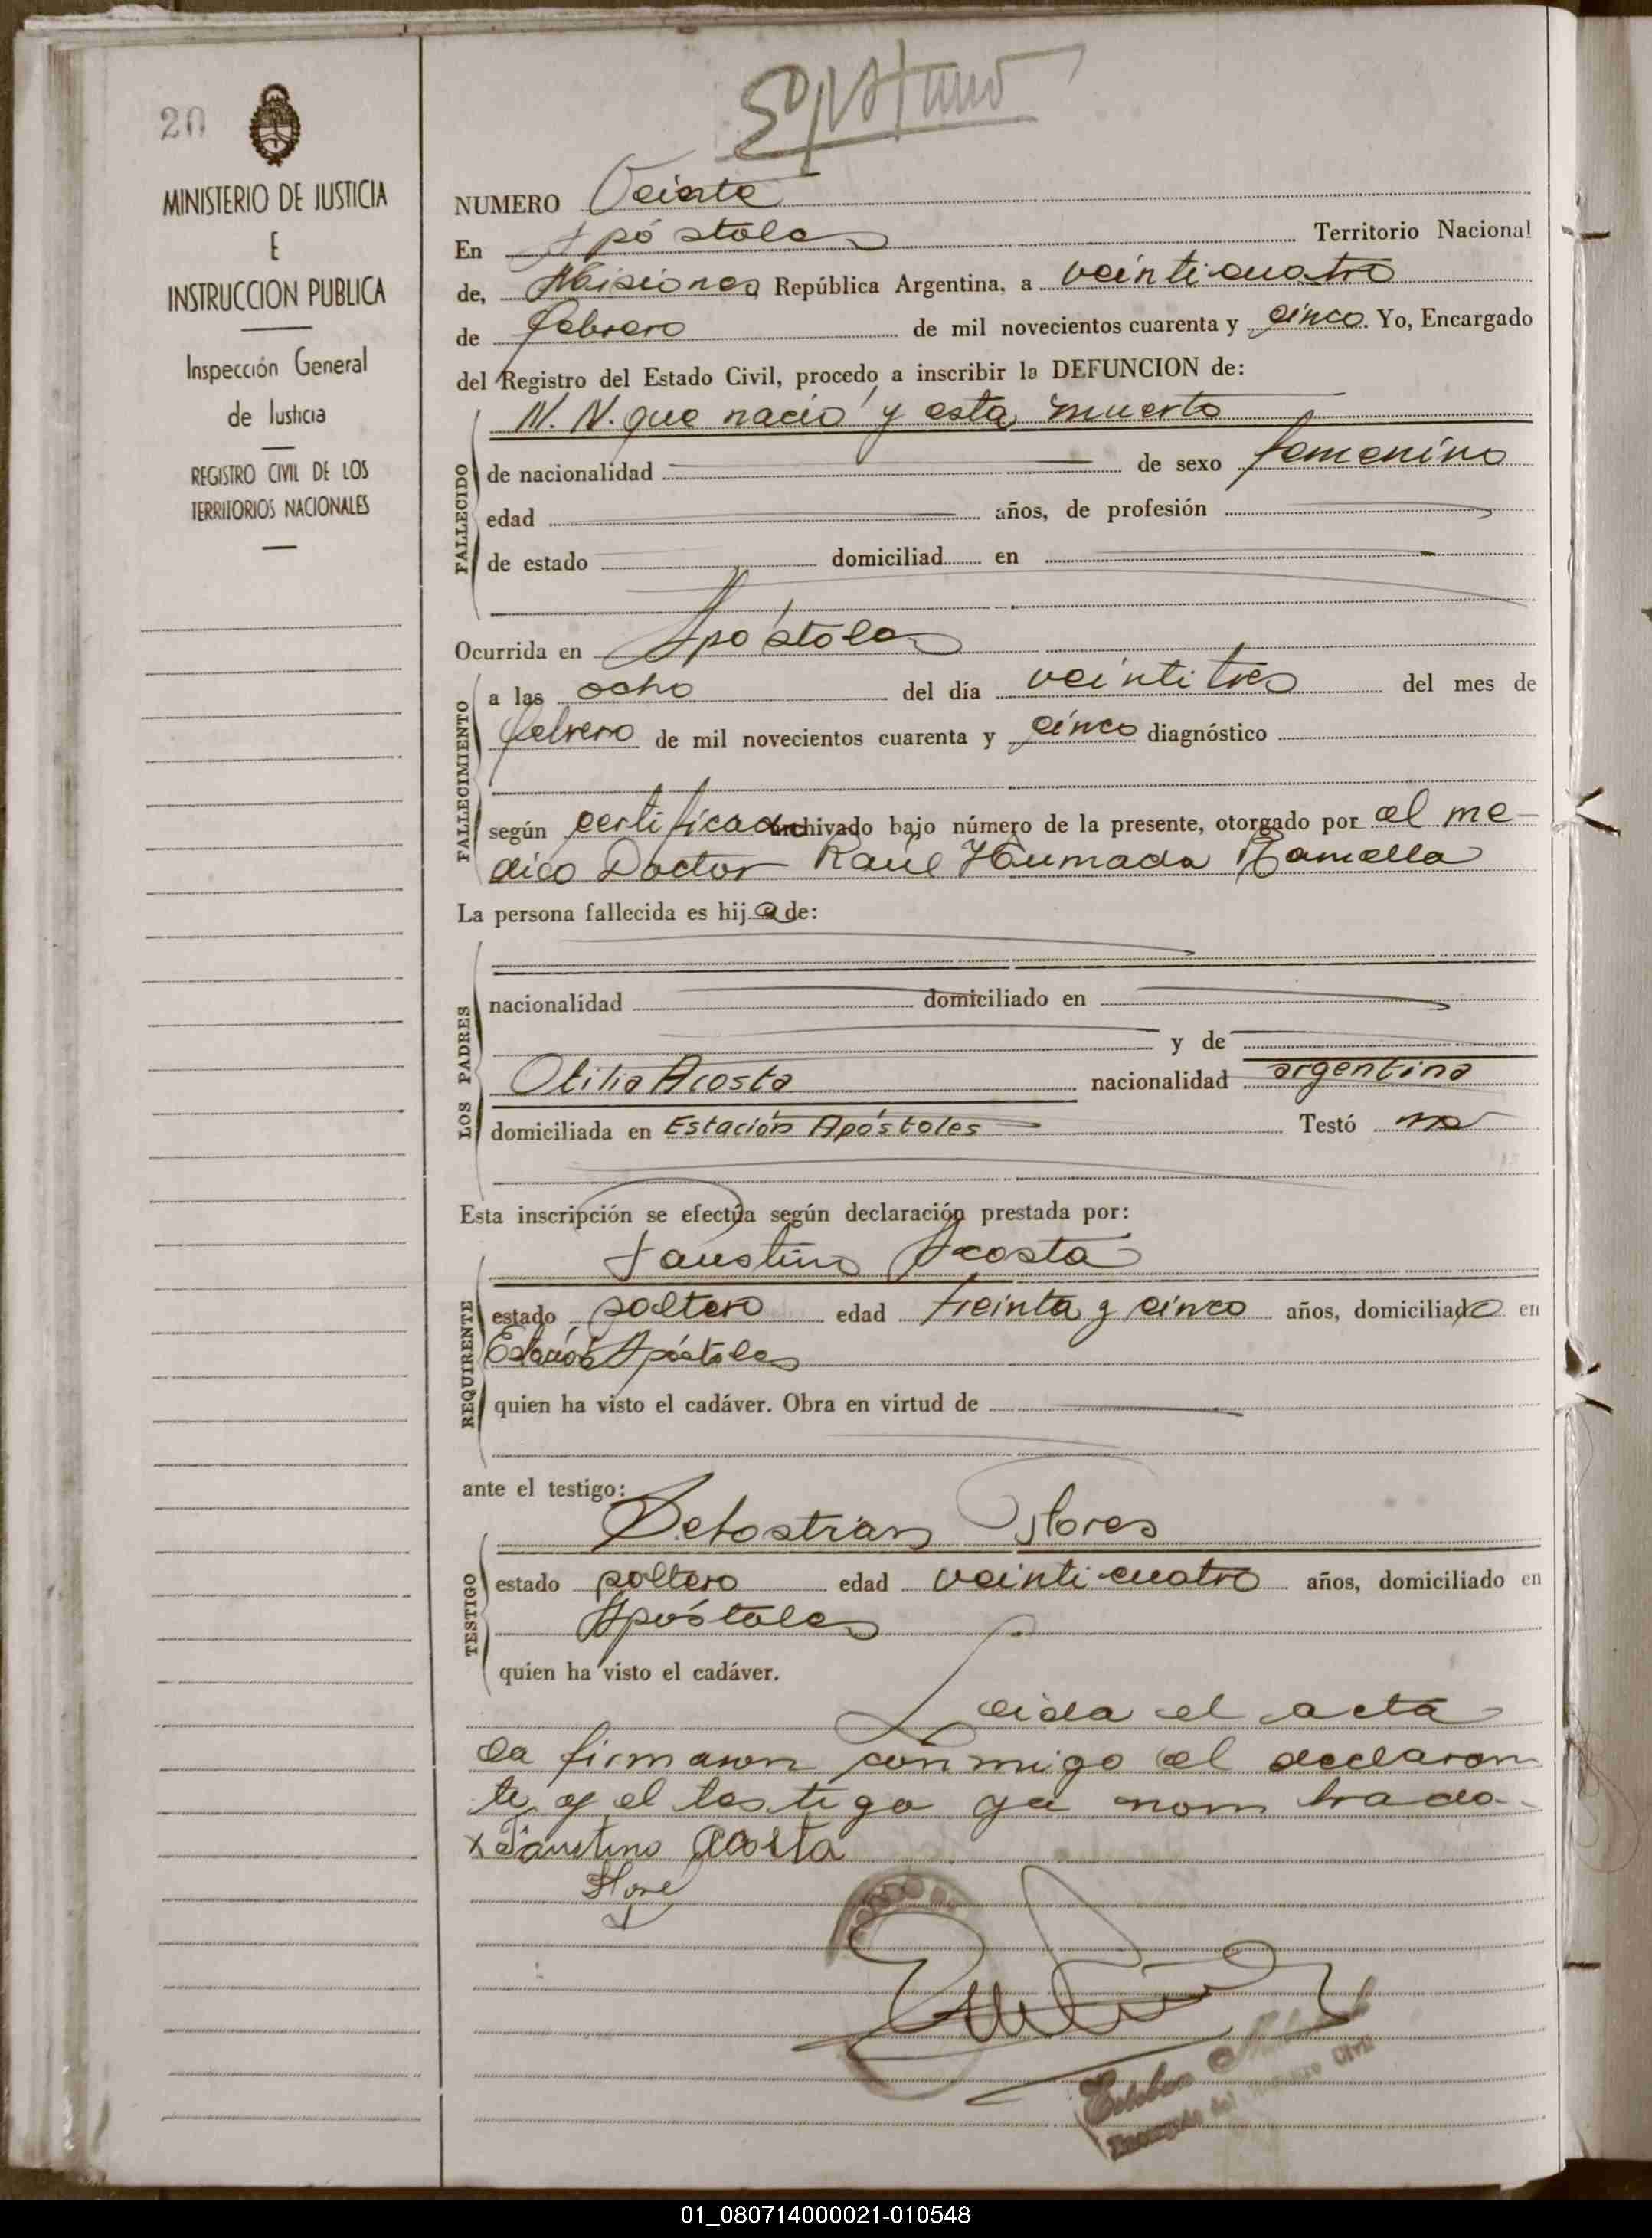 20
MINISTERIO DE JUSTICIA
E
INSTRUCCION PUBLICA
Inspección General
de Justicia
REGISTRO CIVIL DE LOS
TERRITORIOS NACIONALES
NUMERO Veinte
En Apóstoles Territorio Nacional
de, Misiones República Argentina, a veinticuatro
de febrero de mil novecientos cuarenta y cinco. Yo, Encargado
del Registro del Estado Civil, procedo a inscribir la DEFUNCION de:
FALLECIDO
N. N. que nació y esta muerto
de nacionalidad de sexo femenino
edad años, de profesión
de estado domiciliad en
Ocurrida en Apóstoles
FALLECIMIENTO
a las ocho del día veintitres del mes de
febrero de mil novecientos cuarenta y cinco diagnóstico
según certificado archivado bajo número de la presente, otorgado por el me-
dico Doctor Raúl Humada Ramella
La persona fallecida es hija de:
LOS PADRES
nacionalidad domiciliado en
y de
Otilia Acosta nacionalidad argentina
domiciliada en Estación Apóstoles Testó
Esta inscripción se efectúa según declaración prestada por:
REQUIRENTE
Faustino Acosta
estado soltero edad treinta y cinco años, domiciliado en
Estación Apóstoles
quien ha visto el cadáver. Obra en virtud de
ante el testigo:
TESTIGO
Flores
estado soltero edad veinticuatro años, domiciliado en
Apóstoles
quien ha visto el cadáver.
Leida el acta
la firmaron conmigo el declaran
te y el testigo ya nombrado-
x Faustino Acosta
Esteban
Encargado del Registro Civil
01_080714000021-010548